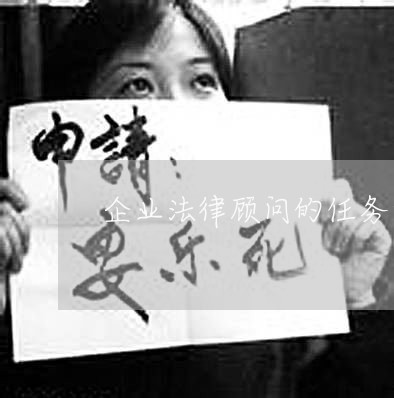 申請：
企业法律顾问的任务
安乐死